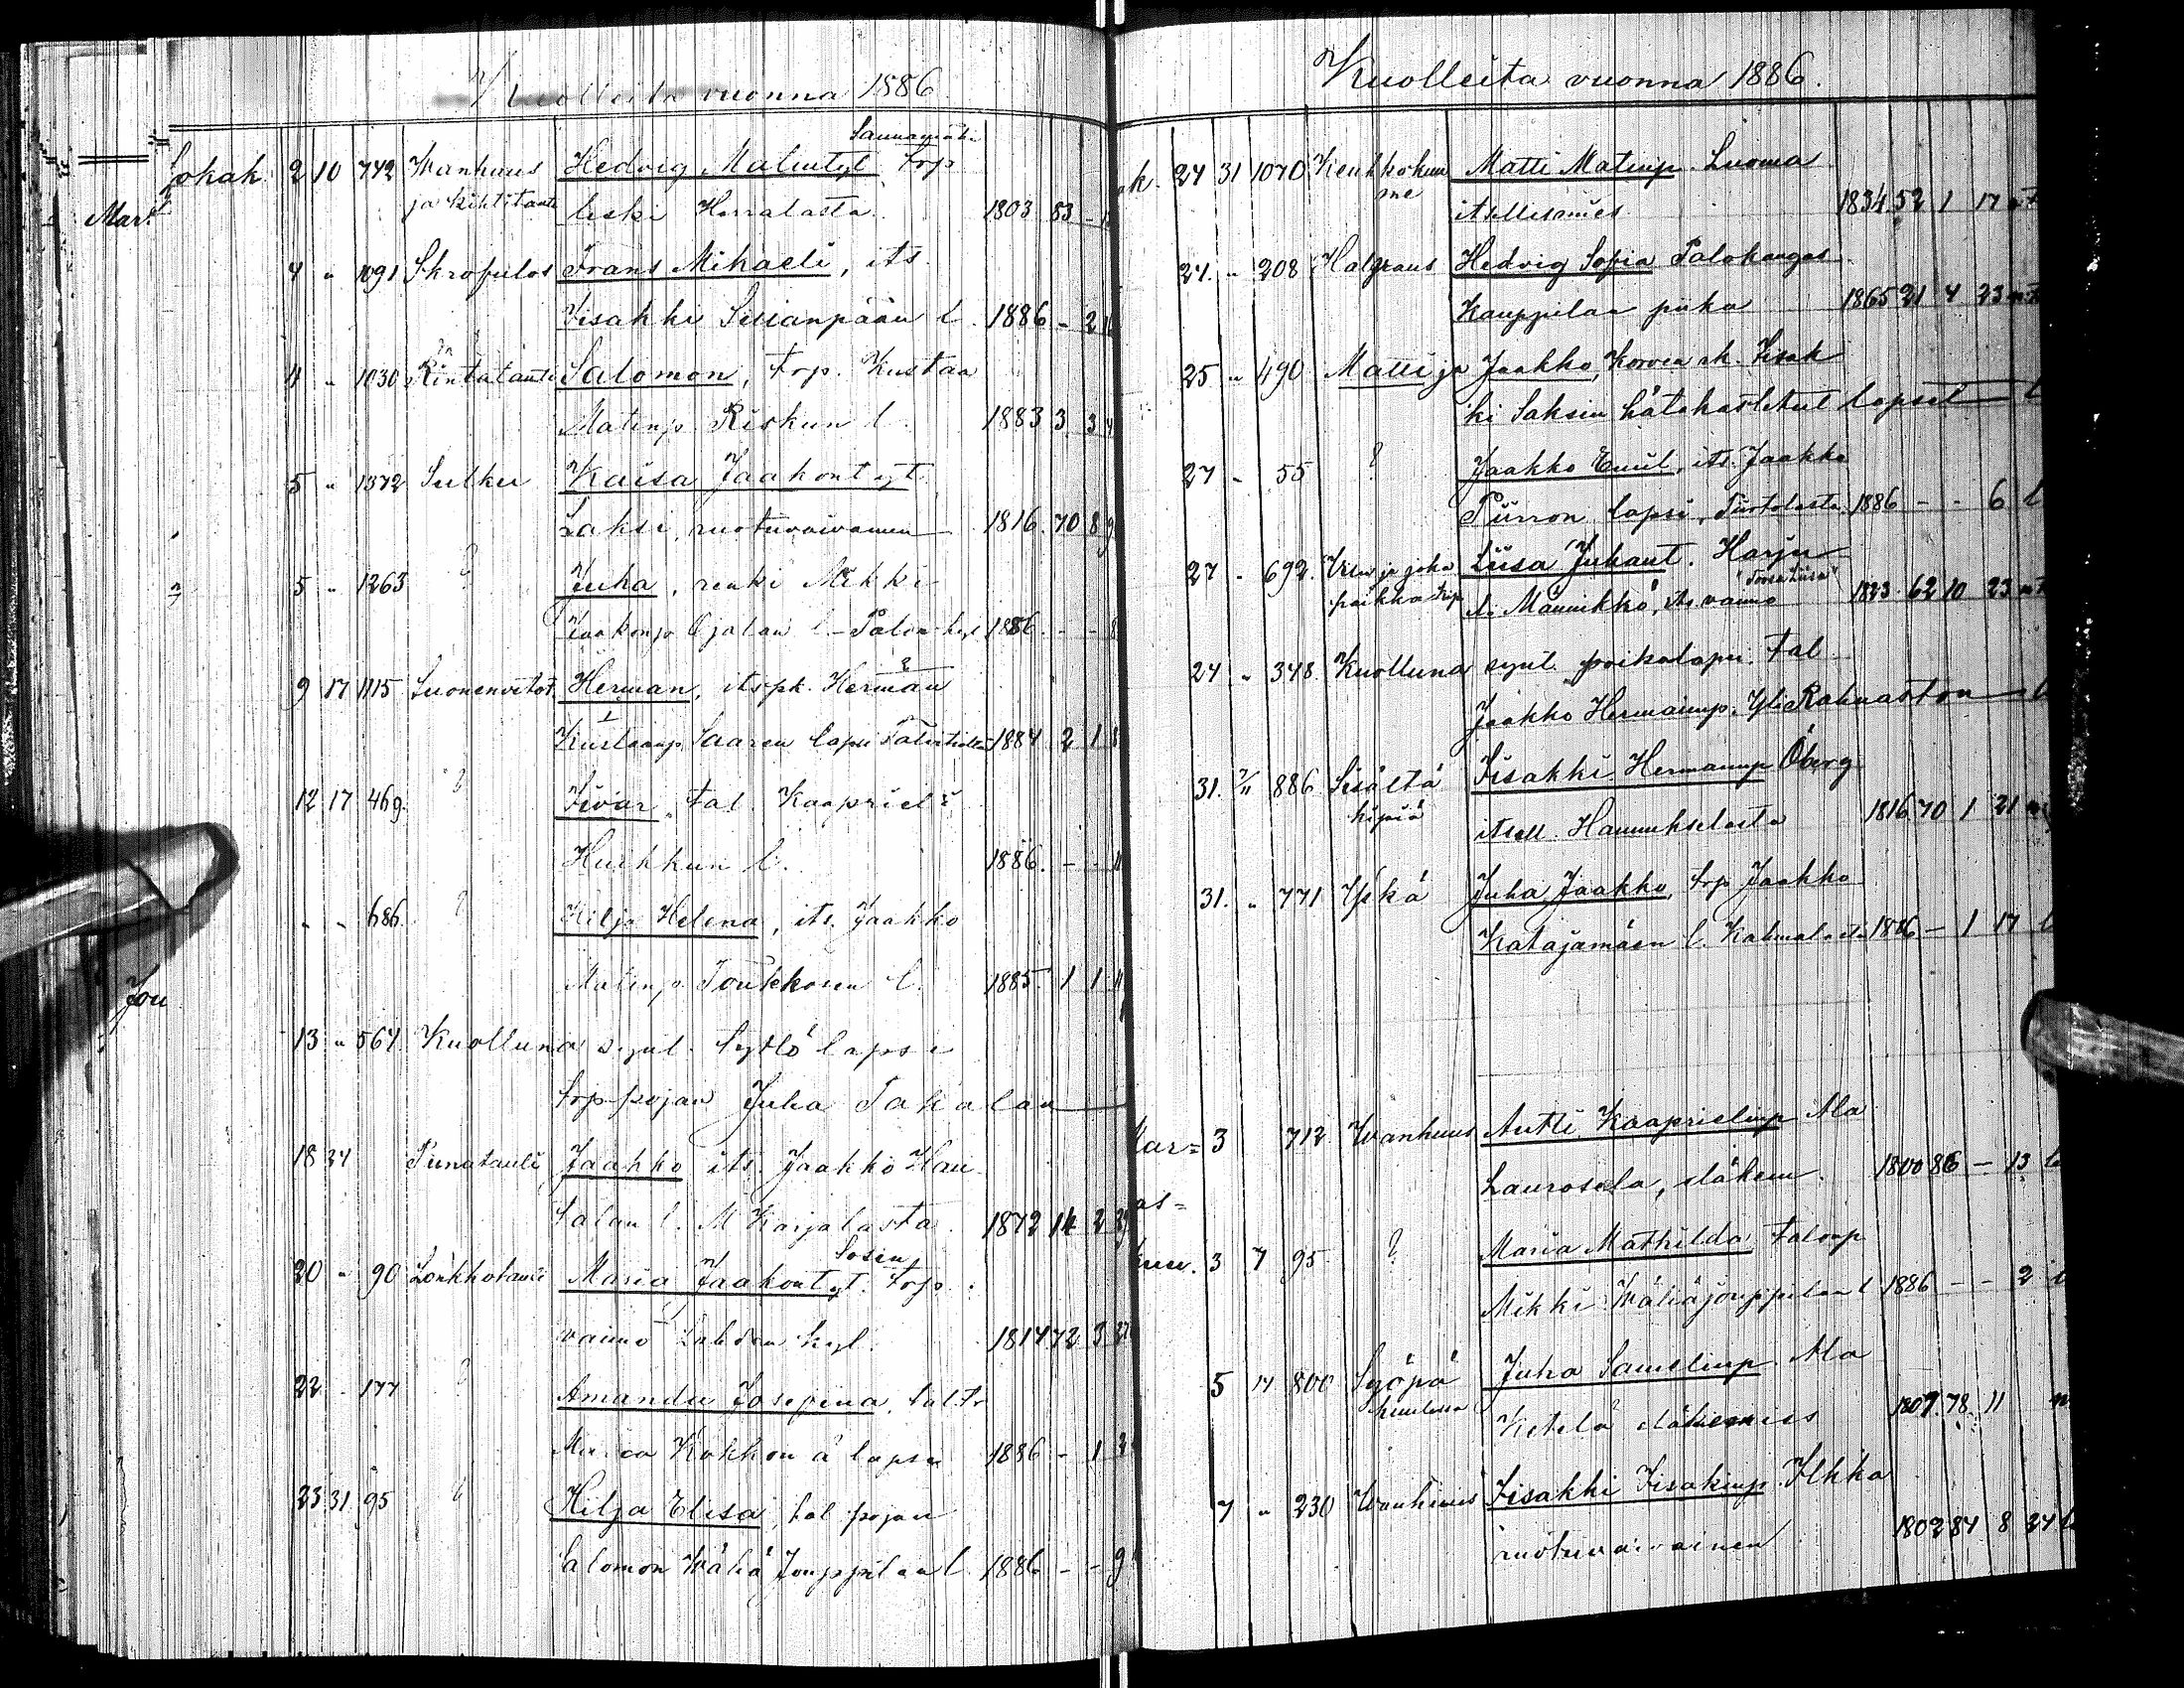 Kuolleita vuonna 1886
Lokak. 2 10 742 Wanhuus Hedvig Matintyt. Trp
ja kihtitauti leski Harralasta 1803 83 -
Mar.
4 " 1091 Skrofulos Frans Mihaeli, its.
Iisakki Susianpään l. 1886 - 2
4 " 1030 Rintatauti Salomon, trp. Kustaa
Matinp. Riskun l. 1883 3 3
5 " 1372 Sulku Kaisa Jaakontyt
Laksi, ruotuvaivanen 1816 70 8
5 " 1263 ? Juha, renki Mikki
Jaakonp Ojalan l. 1886 - - 8
9 17 1115 Suonenvetot. Herman, its.pk. Herman
Kustaanp Saaren lapsi 1884 2 1 8
12 17 469 ? Iivar, tal. Kaapriel
Huhkun l. 1886. - - 11
" - 686 ? Hilja Helena, its. Jaakko
Matinp. Toukkosen l. 1885 1 1 11
Jou
13 " 564 Kuolluna synt. tyttö lapsi
trp-pojan Juha Takalan
18 24 Punatauti Jaakko its. Jaakko Hau
salan l. M Karjalasta. 1872 14 2 29
20 - 90 Lonkkotauti Maria Jaakontyt. Sosin trp.
vaimo Lahden kyl. 1814 72 3 27
22 - 177 ? Amanda Josefina, tal.tr
Maria Kokkon ä lapsi 1886 - 1
23 31 95 ? Hilja Elisa, tal pojan
Salomon Wähä Jouppilan l. 1886 - - 9
Kuolleita vuonna 1886.
ok. 24 31 1070 Keuhkokuu Matti Matinp. Luoma
me itsellismies 1834 52 1 17
24. " 208 Halvaus Hedvig Sofia Palokangas
Kauppilan piika 1865 21 4 23
25 " 490 Matti ja Jaakko, Korvea rk. Iisak
ki Saksin hätäkastetut lapset
27 - 55 ? Jaakko Emil, its. Jaakko
Piirron lapsi, Tiistolasta 1886 - - 6 l
27 - 692. Juha Liisa Juhant. Harju
paikka Männikkö, its. vaimo 1823 62 10 23
24 " 348 Kuolluna synt. poikalapsi tal
Jaakko Hermaninp. Yli Rahnaston
31. 7/11 886 Sisältä Iisakki Hermaninp Öberg
kipiä itsell. Hannukselasta 1816 70 1 21
31. " 771 Yskä Juha Jaakko, trp Jaakko
Katajamäen l. 1886 - 1 17 l
Mar= 3 712 Wanhuus Antti Kaaprielinp Ala
ras= Laurosela, eläkem. 1800 86 - 13
kuu. 3 7 95 ? Maria Mathilda, talonp
Mikki Wähäjouppilan l 1886 - - 2
5 14 800 Syöpä Juha Samelinp. Ala
huulessa Ketela eläkemies 1807 78 11
7 " 230 Wanhuus Iisakki Iisakinp. Ilkka
ruotuvaivainen 1802 84 8 24